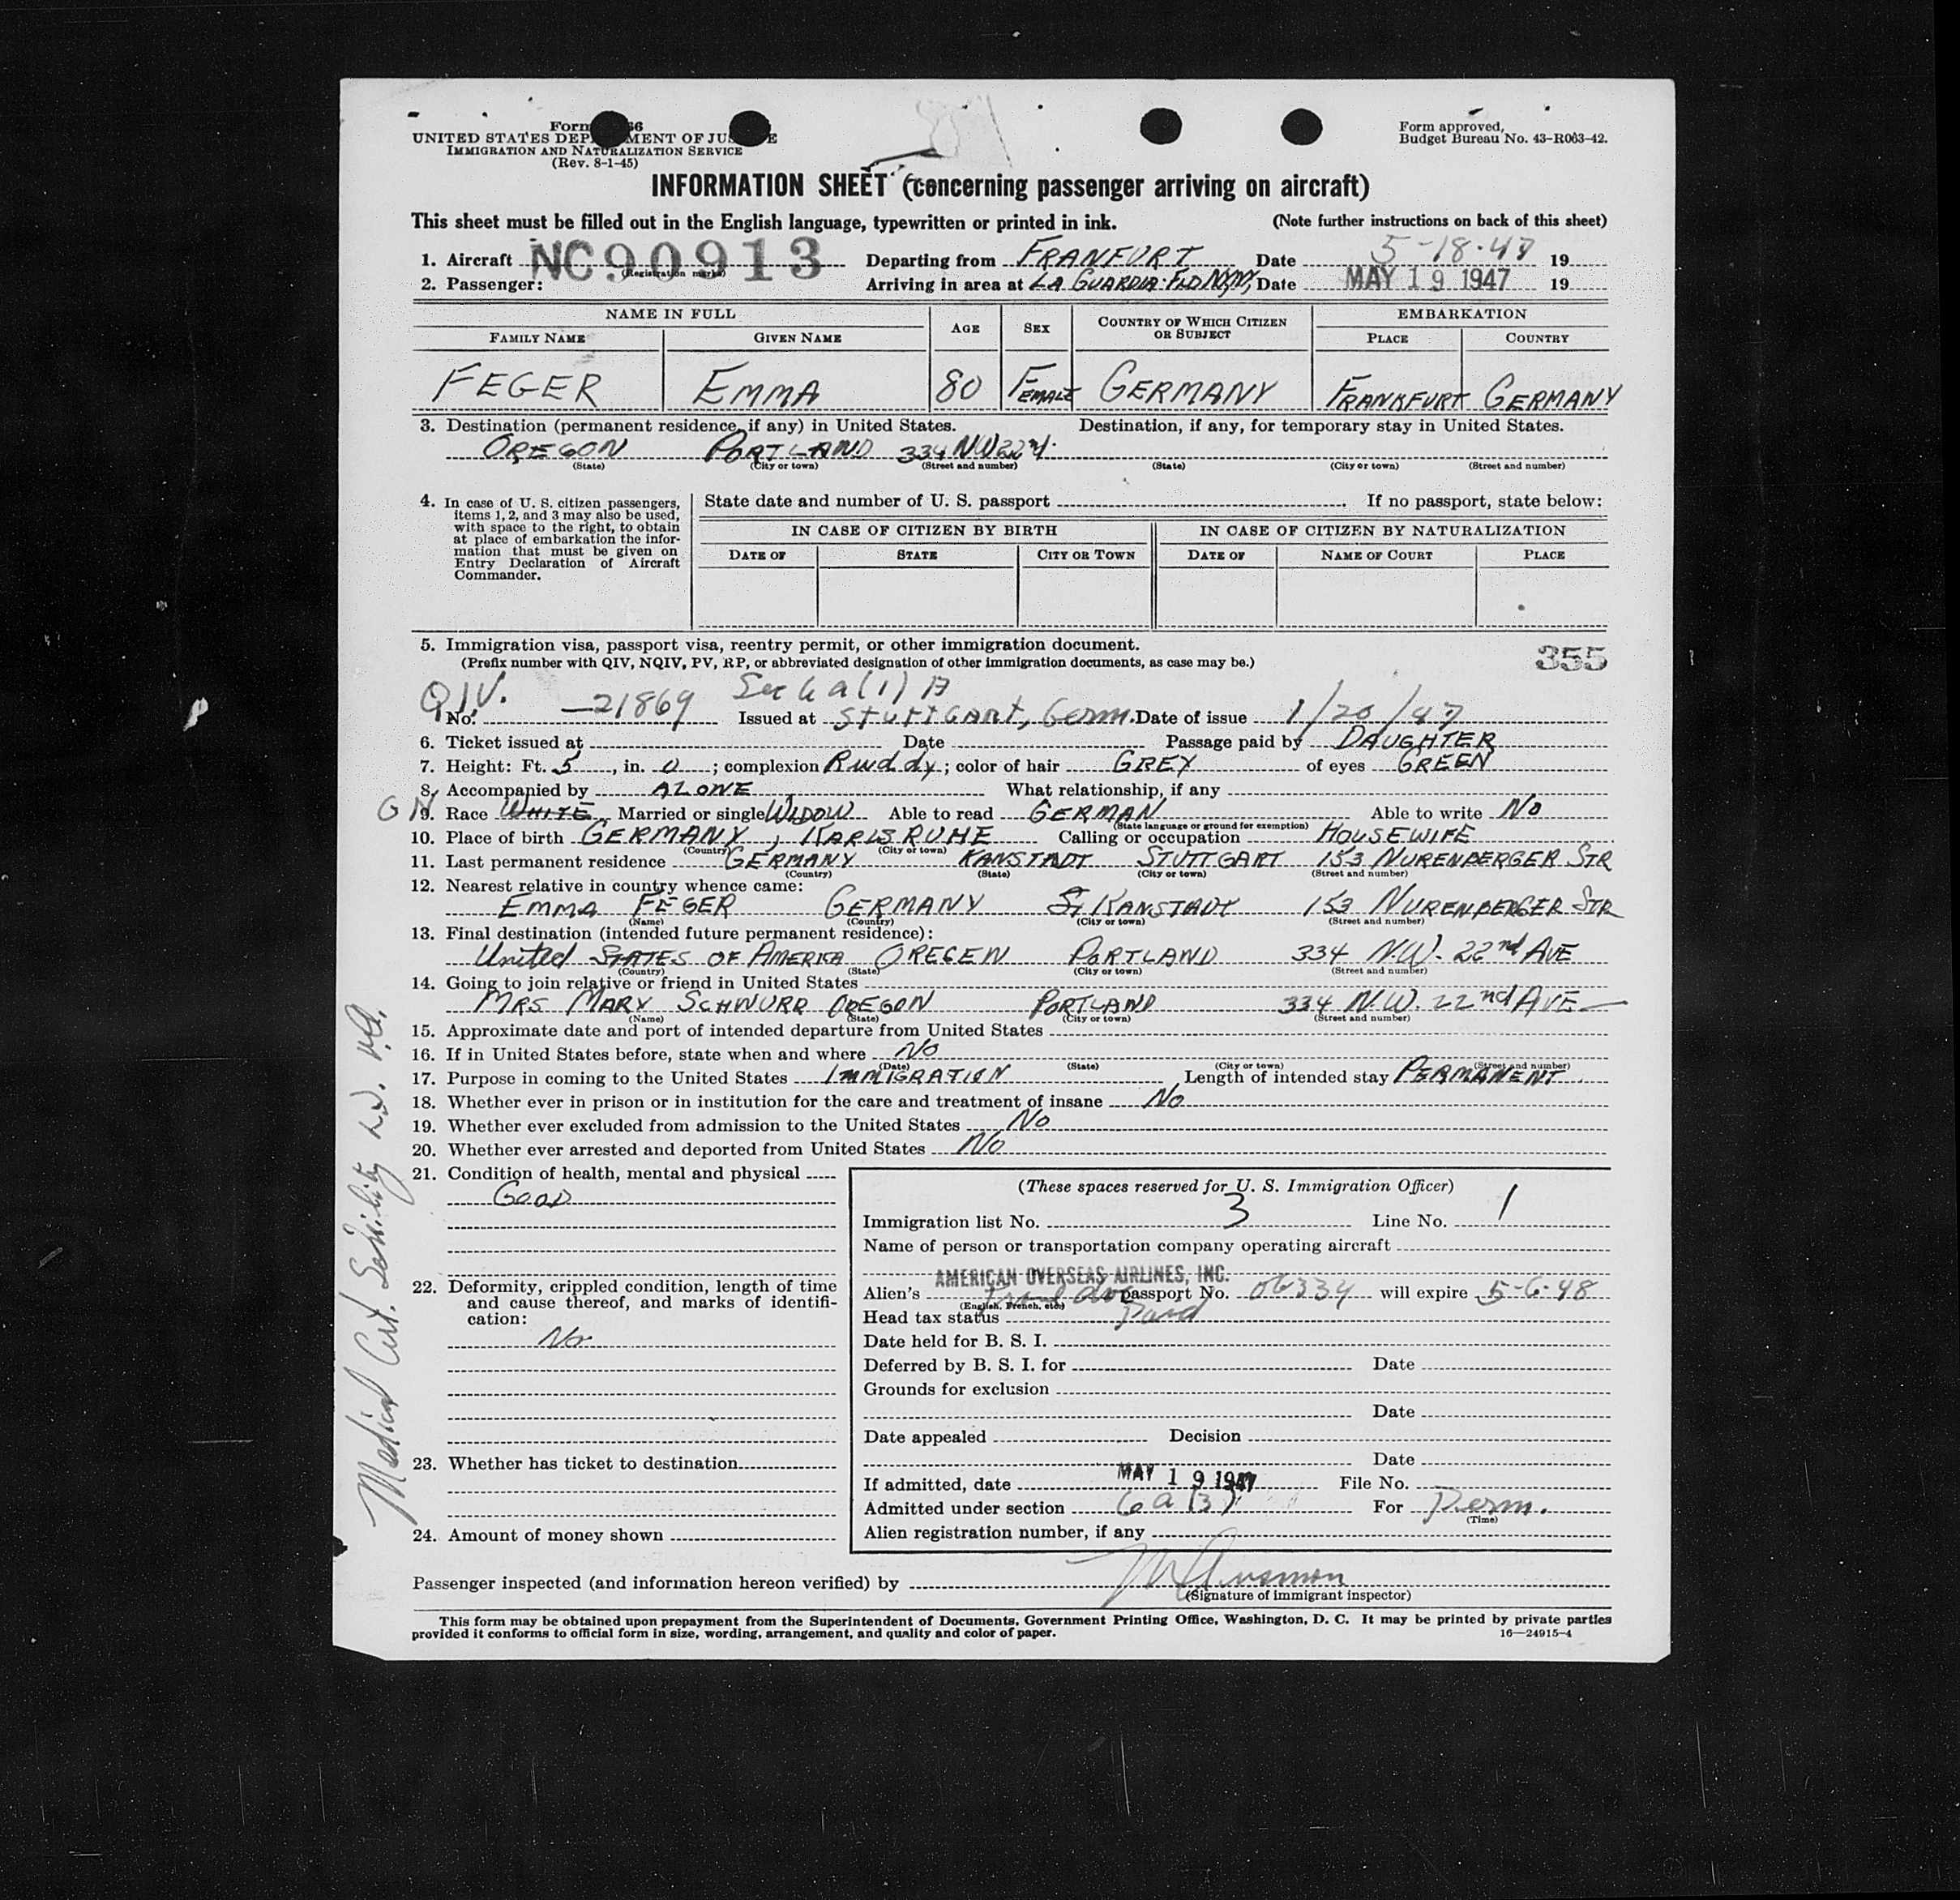 Form 66
UNITED STATES DEP MENT OF JUS E
IMMIGRATION AND NATURALIZATION SERVICE
(Rev. 8-1-45)
Form approved,
Budget Bureau No. 43-R063-42.
INFORMATION SHEET (concerning passenger arriving on aircraft)
This sheet must be filled out in the English language, typewritten or printed in ink. (Note further instructions on back of this sheet)
1. Aircraft NC90913 Departing from FRANFURT Date 5-18-47 19
(Registration marks)
2. Passenger: Arriving in area at LA GUARDIA FLD N.Y. Date MAY 19 1947 19
NAME IN FULL AGE SEX COUNTRY OF WHICH CITIZEN OR SUBJECT EMBARKATION
FAMILY NAME GIVEN NAME PLACE COUNTRY
FEGER EMMA 80 FEMALE GERMANY FRANKFURT GERMANY
3. Destination (permanent residence, if any) in United States. Destination, if any, for temporary stay in United States.
OREGON PORTLAND 334 NW 22
(State) (City or town) (Street and number) (State) (City or town) (Street and number)
4. In case of U. S. citizen passengers,
items 1, 2, and 3 may also be used,
with space to the right, to obtain
at place of embarkation the infor-
mation that must be given on
Entry Declaration of Aircraft
Commander.
State date and number of U. S. passport If no passport, state below:
IN CASE OF CITIZEN BY BIRTH IN CASE OF CITIZEN BY NATURALIZATION
DATE OF STATE CITY OR TOWN DATE OF NAME OF COURT PLACE
5. Immigration visa, passport visa, reentry permit, or other immigration document.
(Prefix number with QIV, NQIV, PV, RP, or abbreviated designation of other immigration documents, as case may be.) 355
QIV. Sec 6a(1) A
No. —21869 Issued at Stuttgart, Germ. Date of issue 1/20/47
6. Ticket issued at Date Passage paid by DAUGHTER
7. Height: Ft. 5, in. 0; complexion Ruddy; color of hair GREY of eyes GREEN
8. Accompanied by ALONE What relationship, if any
GN 9. Race WHITE Married or single WIDOW Able to read GERMAN Able to write NO
(State language or ground for exemption)
10. Place of birth GERMANY, KARLSRUHE Calling or occupation HOUSEWIFE
(Country) (City or town)
11. Last permanent residence GERMANY KANSTADT STUTTGART 153 NURENBERGER STR
(Country) (State) (City or town) (Street and number)
12. Nearest relative in country whence came:
EMMA FEGER GERMANY St KANSTADT 153 NURENBERGER STR
(Name) (Country) (City or town) (Street and number)
13. Final destination (intended future permanent residence):
United STATES OF AMERICA OREGEN PORTLAND 334 N.W. 22nd AVE
(Country) (State) (City or town) (Street and number)
14. Going to join relative or friend in United States
MRS MARY SCHWURR OREGON PORTLAND 334 N.W. 22nd AVE
(Name) (State) (City or town) (Street and number)
15. Approximate date and port of intended departure from United States
16. If in United States before, state when and where NO
(Date) (State) (City or town) (Street and number)
17. Purpose in coming to the United States IMMIGRATION Length of intended stay PERMANENT
18. Whether ever in prison or in institution for the care and treatment of insane NO
19. Whether ever excluded from admission to the United States NO
20. Whether ever arrested and deported from United States NO
21. Condition of health, mental and physical
GOOD
22. Deformity, crippled condition, length of time
and cause thereof, and marks of identifi-
cation:
No
23. Whether has ticket to destination
24. Amount of money shown
(These spaces reserved for U. S. Immigration Officer)
Immigration list No. 3 Line No. 1
Name of person or transportation company operating aircraft
AMERICAN OVERSEAS AIRLINES, INC.
Alien's passport No. 06334 will expire 5-6-48
(English, French, etc.)
Head tax status Paid
Date held for B. S. I.
Deferred by B. S. I. for Date
Grounds for exclusion
Date
Date appealed Decision
Date
If admitted, date MAY 19 1947 File No.
Admitted under section 6a(3) For Perm.
(Time)
Alien registration number, if any
Passenger inspected (and information hereon verified) by
(Signature of immigrant inspector)
This form may be obtained upon prepayment from the Superintendent of Documents, Government Printing Office, Washington, D. C. It may be printed by private parties
provided it conforms to official form in size, wording, arrangement, and quality and color of paper. 16—24915-4
Medical Cert. Senility